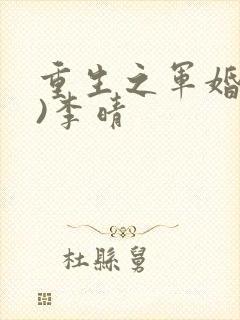 重生之军婚
)李晴
杜縣舅